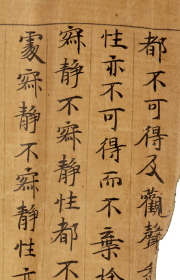 都不可得及觀聲
性亦不可得而不棄捨
寂静不寂静性都不
處寂静不寂静性亦